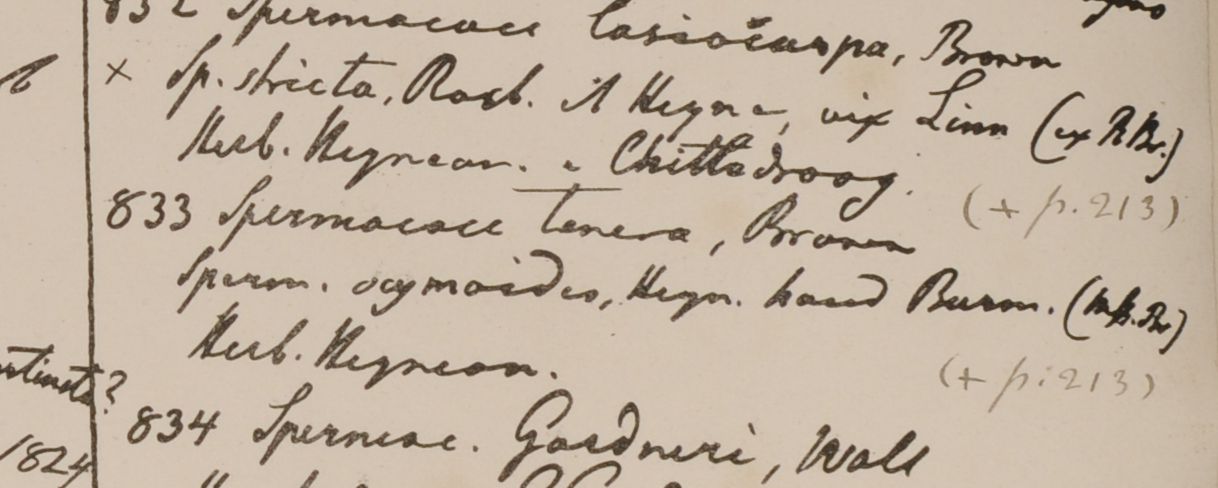 832 Spermacoce lasiocarpa, Brown
× Sp. stricta, Roxb. & Heyne, vix Linn (ex R Br.)
Herb. Heynean. e Chittadroog.
(+ p. 213)
833 Spermacoce tenera, Brown
Sperm. ocymoides, Heyn. haud Burm. (R. Br.)
Herb. Heynean.
(+ p. 213)
834 Spermac. Gardneri, Wall
1824